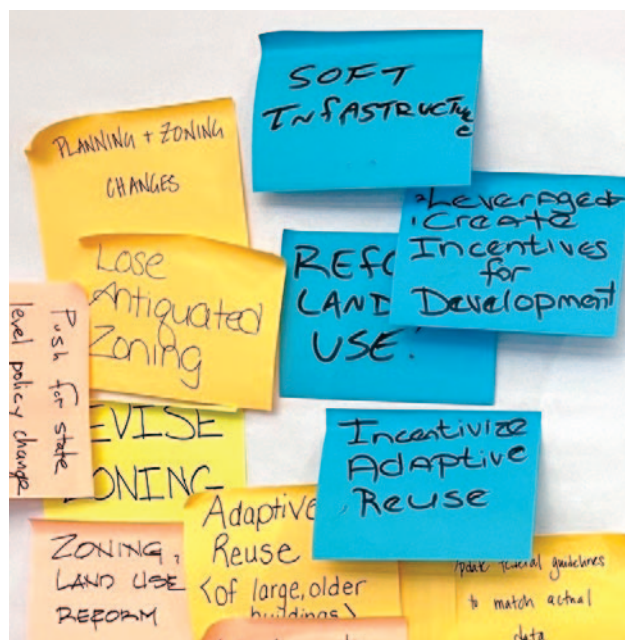 SOFT
INFASTRUCTURE
PLANNING + ZONING
CHANGES
Leverage +
Create
Incentives
for
Development
LOSE
Antiquated
Zoning
REFO
LAND
USE!
Push for state
level policy change
EVISE
ZONING
Incentivize
ADAPTIVE
Reuse
Adaptive
Reuse
<of large, older
buildings>
ZONING,
LAND USE
REFORM
update federal guidelines
to match actual
data